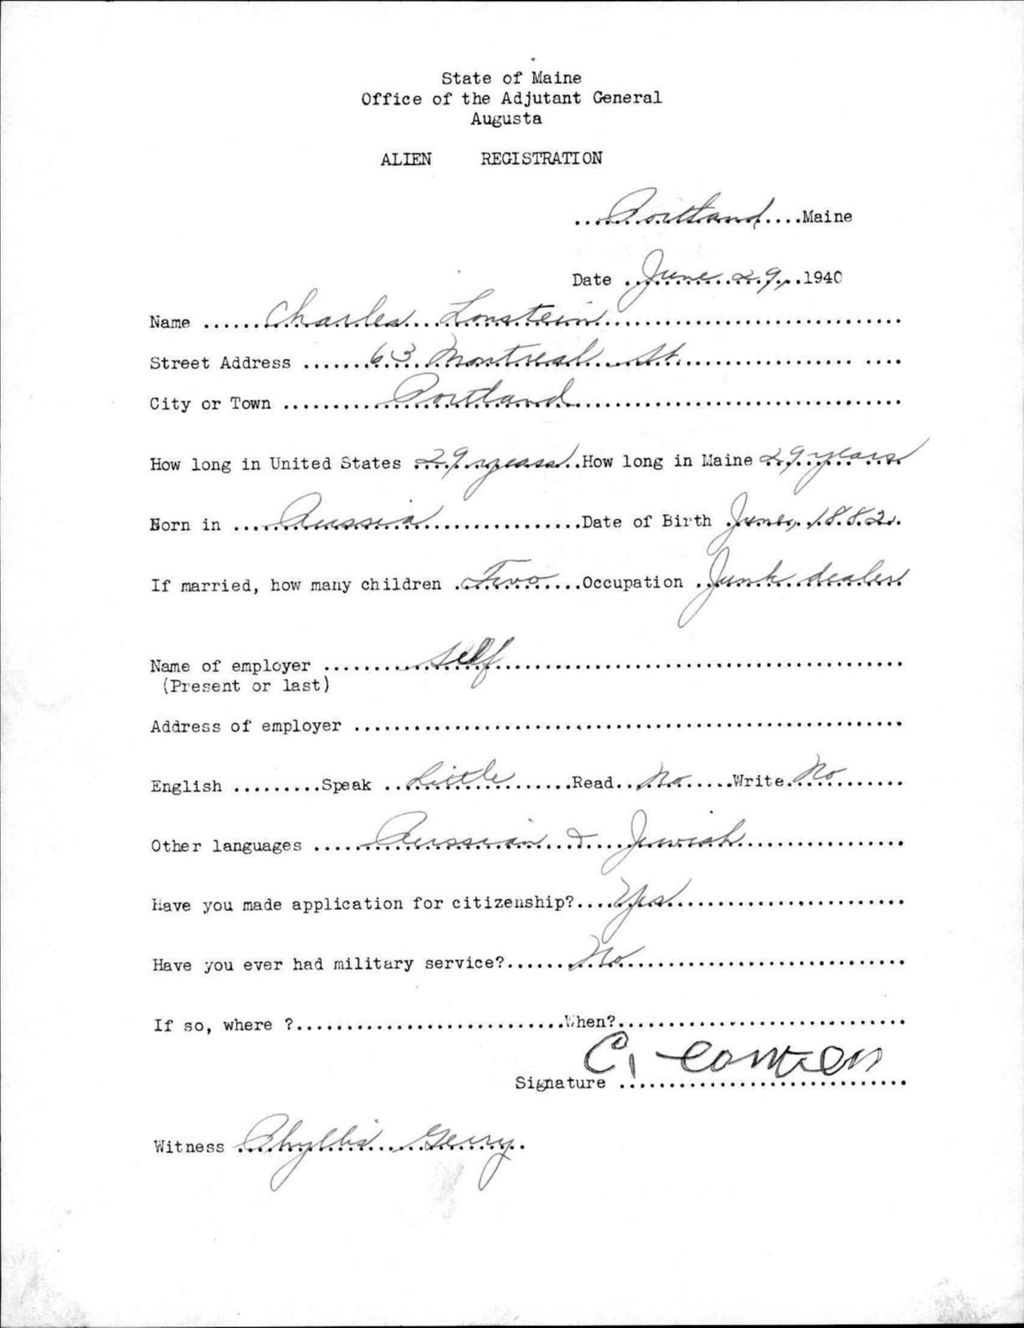 State of Maine
Office of the Adjutant General
Augusta
ALIEN REGISTRATION
....Portland....Maine
Date ..June 29,..1940
Name ......Charles Lonstein..............................
Street Address .......63 Montreal St................... ....
City or Town ..........Portland..............................
How long in United States 29 years..How long in Maine 29 years
Born in ....Russia................Date of Birth June, 1882.
If married, how many children .Two.....Occupation ..Junk dealer
Name of employer .........self........................................
(Present or last)
Address of employer ......................................................
English .........Speak ..Little.......Read..No.....Write.No.......
Other languages ....Russian & Jewish................
Have you made application for citizenship?....Yes.......................
Have you ever had military service?......No..........................
If so, where ?...........................When?.............................
C.
Signature .............................
Witness Phyllis Gerry.